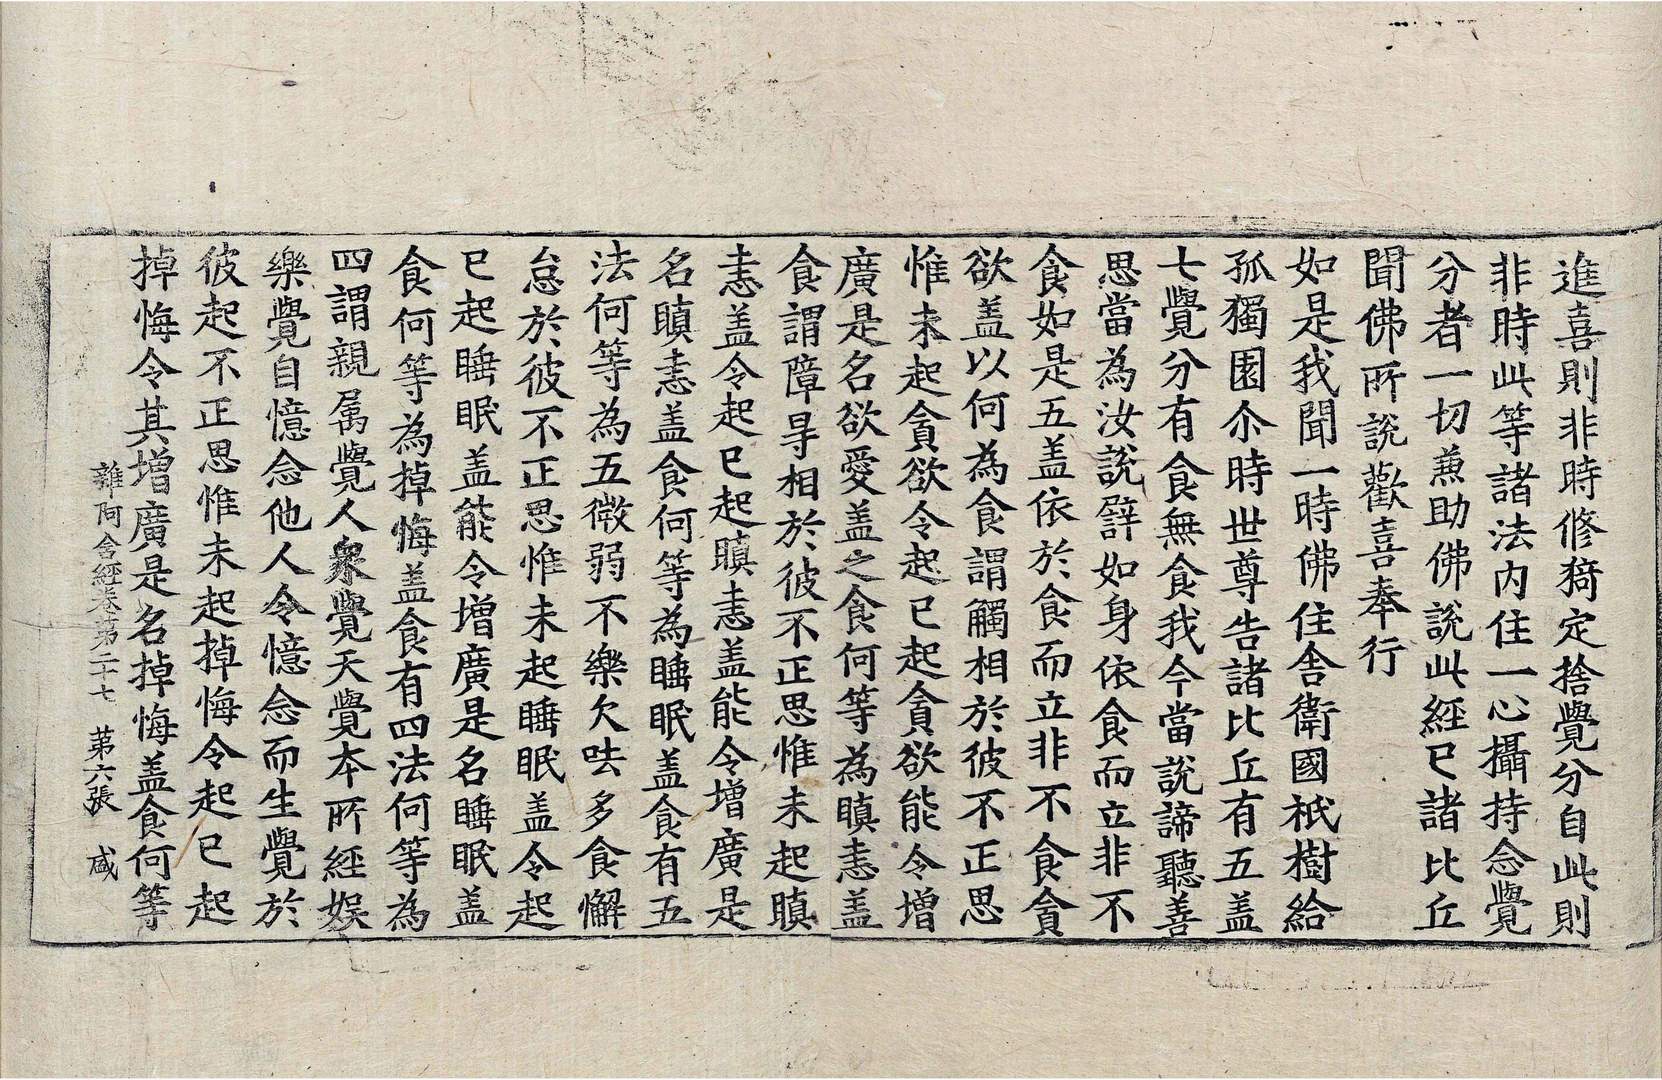 進喜則非時修猗定捨覺分自此則
非時此等諸法内住一心攝持念覺
分者一切兼助佛說此經已諸比丘
聞佛所說歡喜奉行
如是我聞一時佛住舍衛國祇樹給
孤獨園尒時世尊告諸比丘有五盖
七覺分有食無食我今當說諦聽善
思當為汝說譬如身依食而立非不
食如是五盖依於食而立非不食貪
欲盖以何為食謂觸相於彼不正思
惟未起貪欲令起已起貪欲能令增
廣是名欲愛盖之食何等為瞋恚盖
食謂障㝵相於彼不正思惟未起瞋
恚盖令起已起瞋恚盖能令增廣是
名瞋恚盖食何等為睡眠盖食有五
法何等為五微弱不樂欠呿多食懈
怠於彼不正思惟未起睡眠盖令起
已起睡眠盖能令增廣是名睡眠盖
食何等為掉悔盖食有四法何等為
四謂親属覺人衆覺天覺本所經娱
樂覺自憶念他人令憶念而生覺於
彼起不正思惟未起掉悔令起已起
掉悔令其增廣是名掉悔盖食何等
雜阿含經卷第二十七 第六張 咸